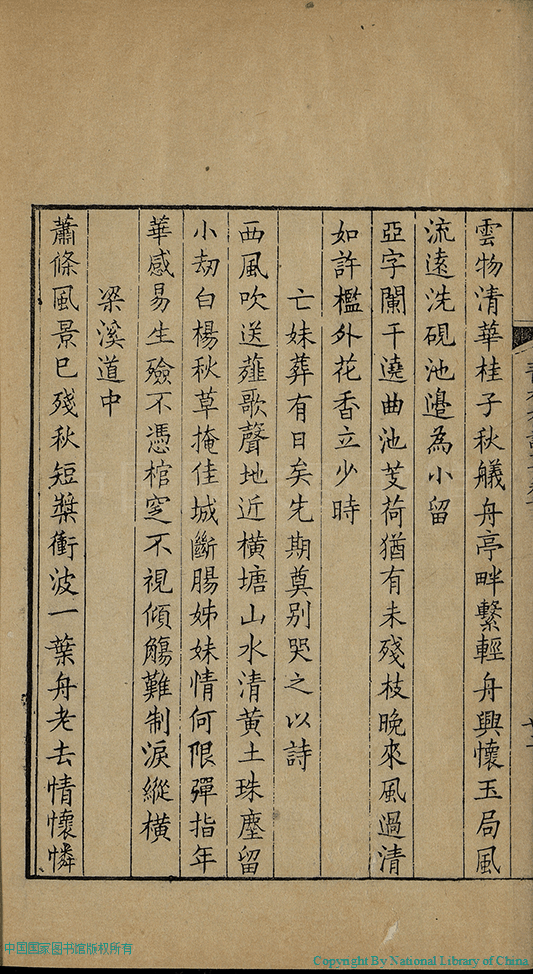 雲物清華桂子秋艤舟亭畔繫輕舟興懷玉局風
流遠洗硯池邊為小留
亞字闌干遶曲池芰荷猶有未殘枝晚來風過清
如許檻外花香立少時
亡妹葬有日矣先期奠別哭之以詩
西風吹送薤歌聲地近橫塘山水清黃土珠塵留
小刼白楊秋草掩佳城斷腸姊妹情何限彈指年
華感易生殮不憑棺窆不視傾觴難制淚縱橫
梁溪道中
蕭條風景已殘秋短槳衝波一葉舟老去情懷憐
中国国家图书馆版权所有
Copyright By National Library of China